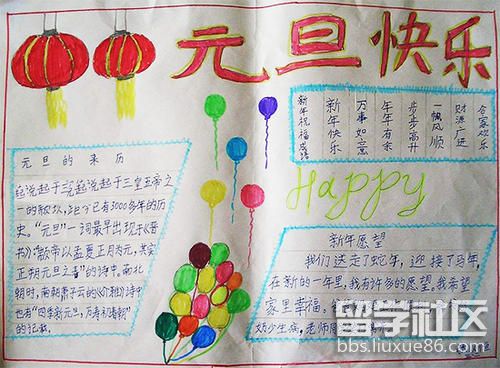 元旦快乐
新年祝福成语
新年快乐
万事如意
年年有余
步步高升
一帆风顺
财源广进
合家欢乐
元旦的来历
Happy
一的秋炊,距今已有3000多年的历
史。"元旦"一词最早出现于《晋
正朔元旦之春"的诗中。南北
朝时,南朝萧子云的《介雅》诗中
也有"四季新元旦,万寿初春朝"
的记载。
新年愿望
我们送走了蛇年,迎接了马年,
在新的一年里,我有许多的愿望。我希望
家里幸福,
奶少生病,老师
留学社区
bbs.liuxue86.com